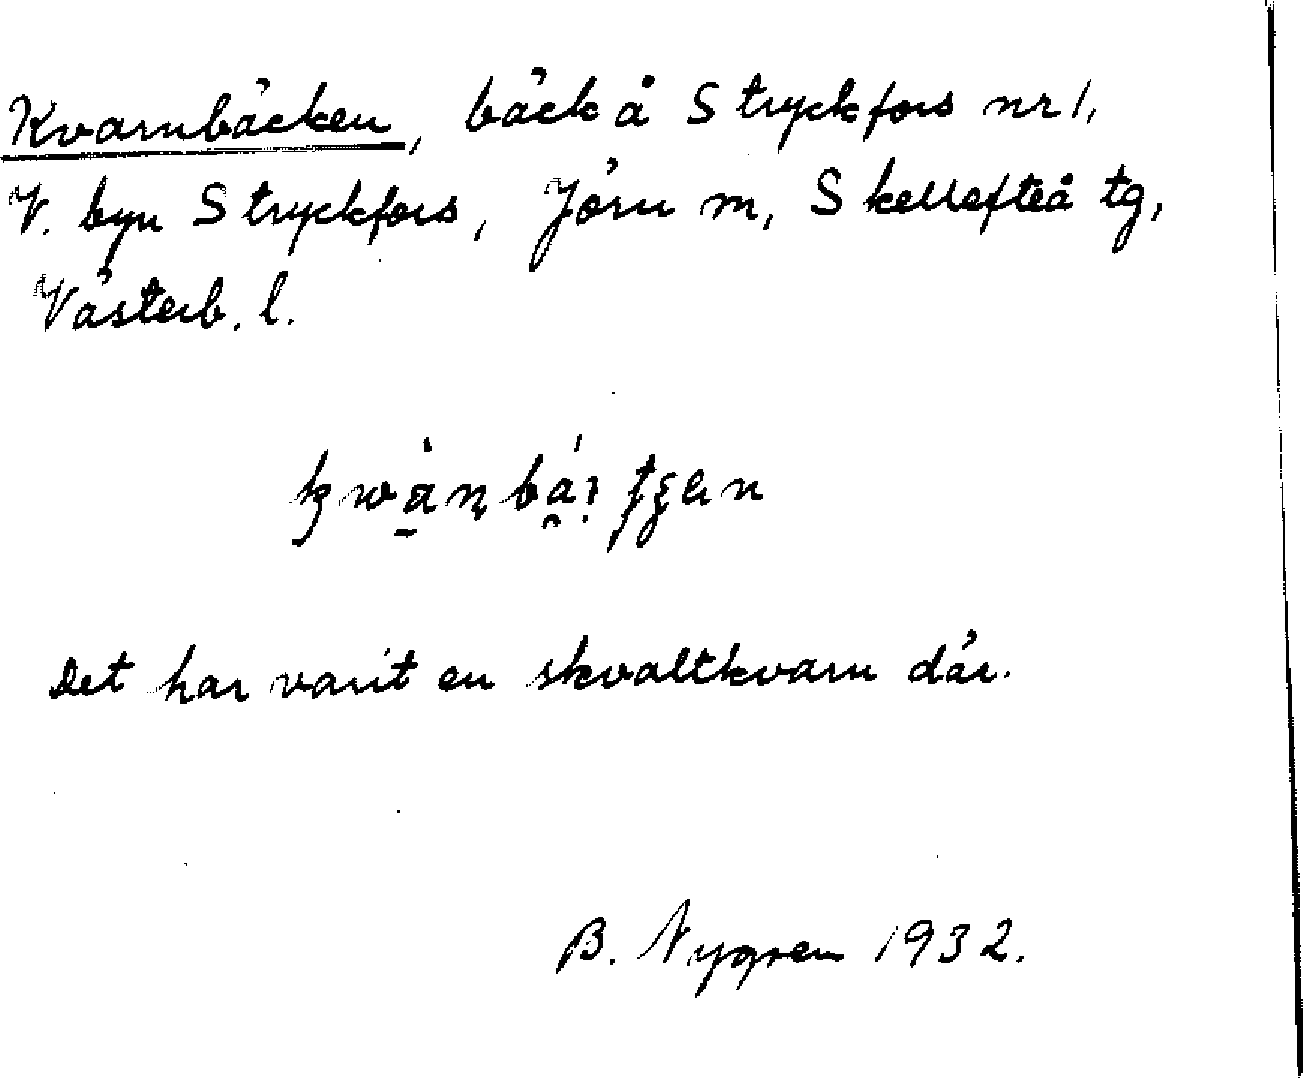 Kvarnbäcken, bäck å Stryckfors nr 1,
V. byn Stryckfors, Jörn m, Skellefteå tg,
Västerb. l.
Det har varit en skvaltkvarn där.
B. Nygren 1932.